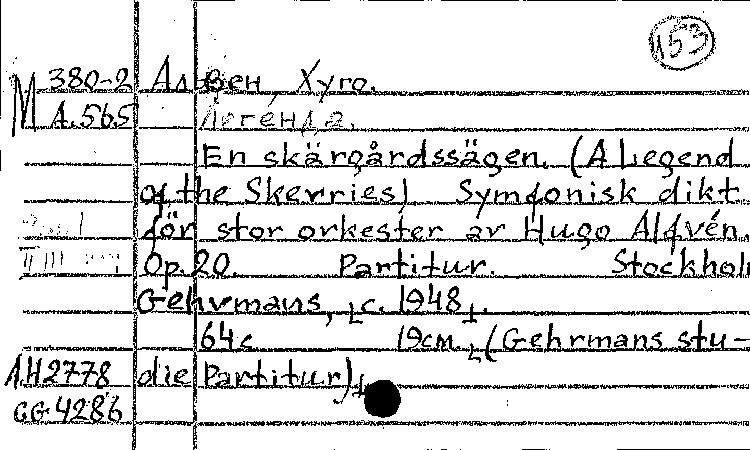 153
М 380-2 Алвен, Хуго.
А.565 Легенда.
En skärgårdssägen. (A Legend
of the Skerries) Symfonisk dikt
för stor orkester av Hugo Alfvén.
Op.20. Partitur. Stockhol
Gehrmans, [c. 1948].
64c 19cm. [(Gehrmans stu-
АН2778 die Partitur)]
СG 4286